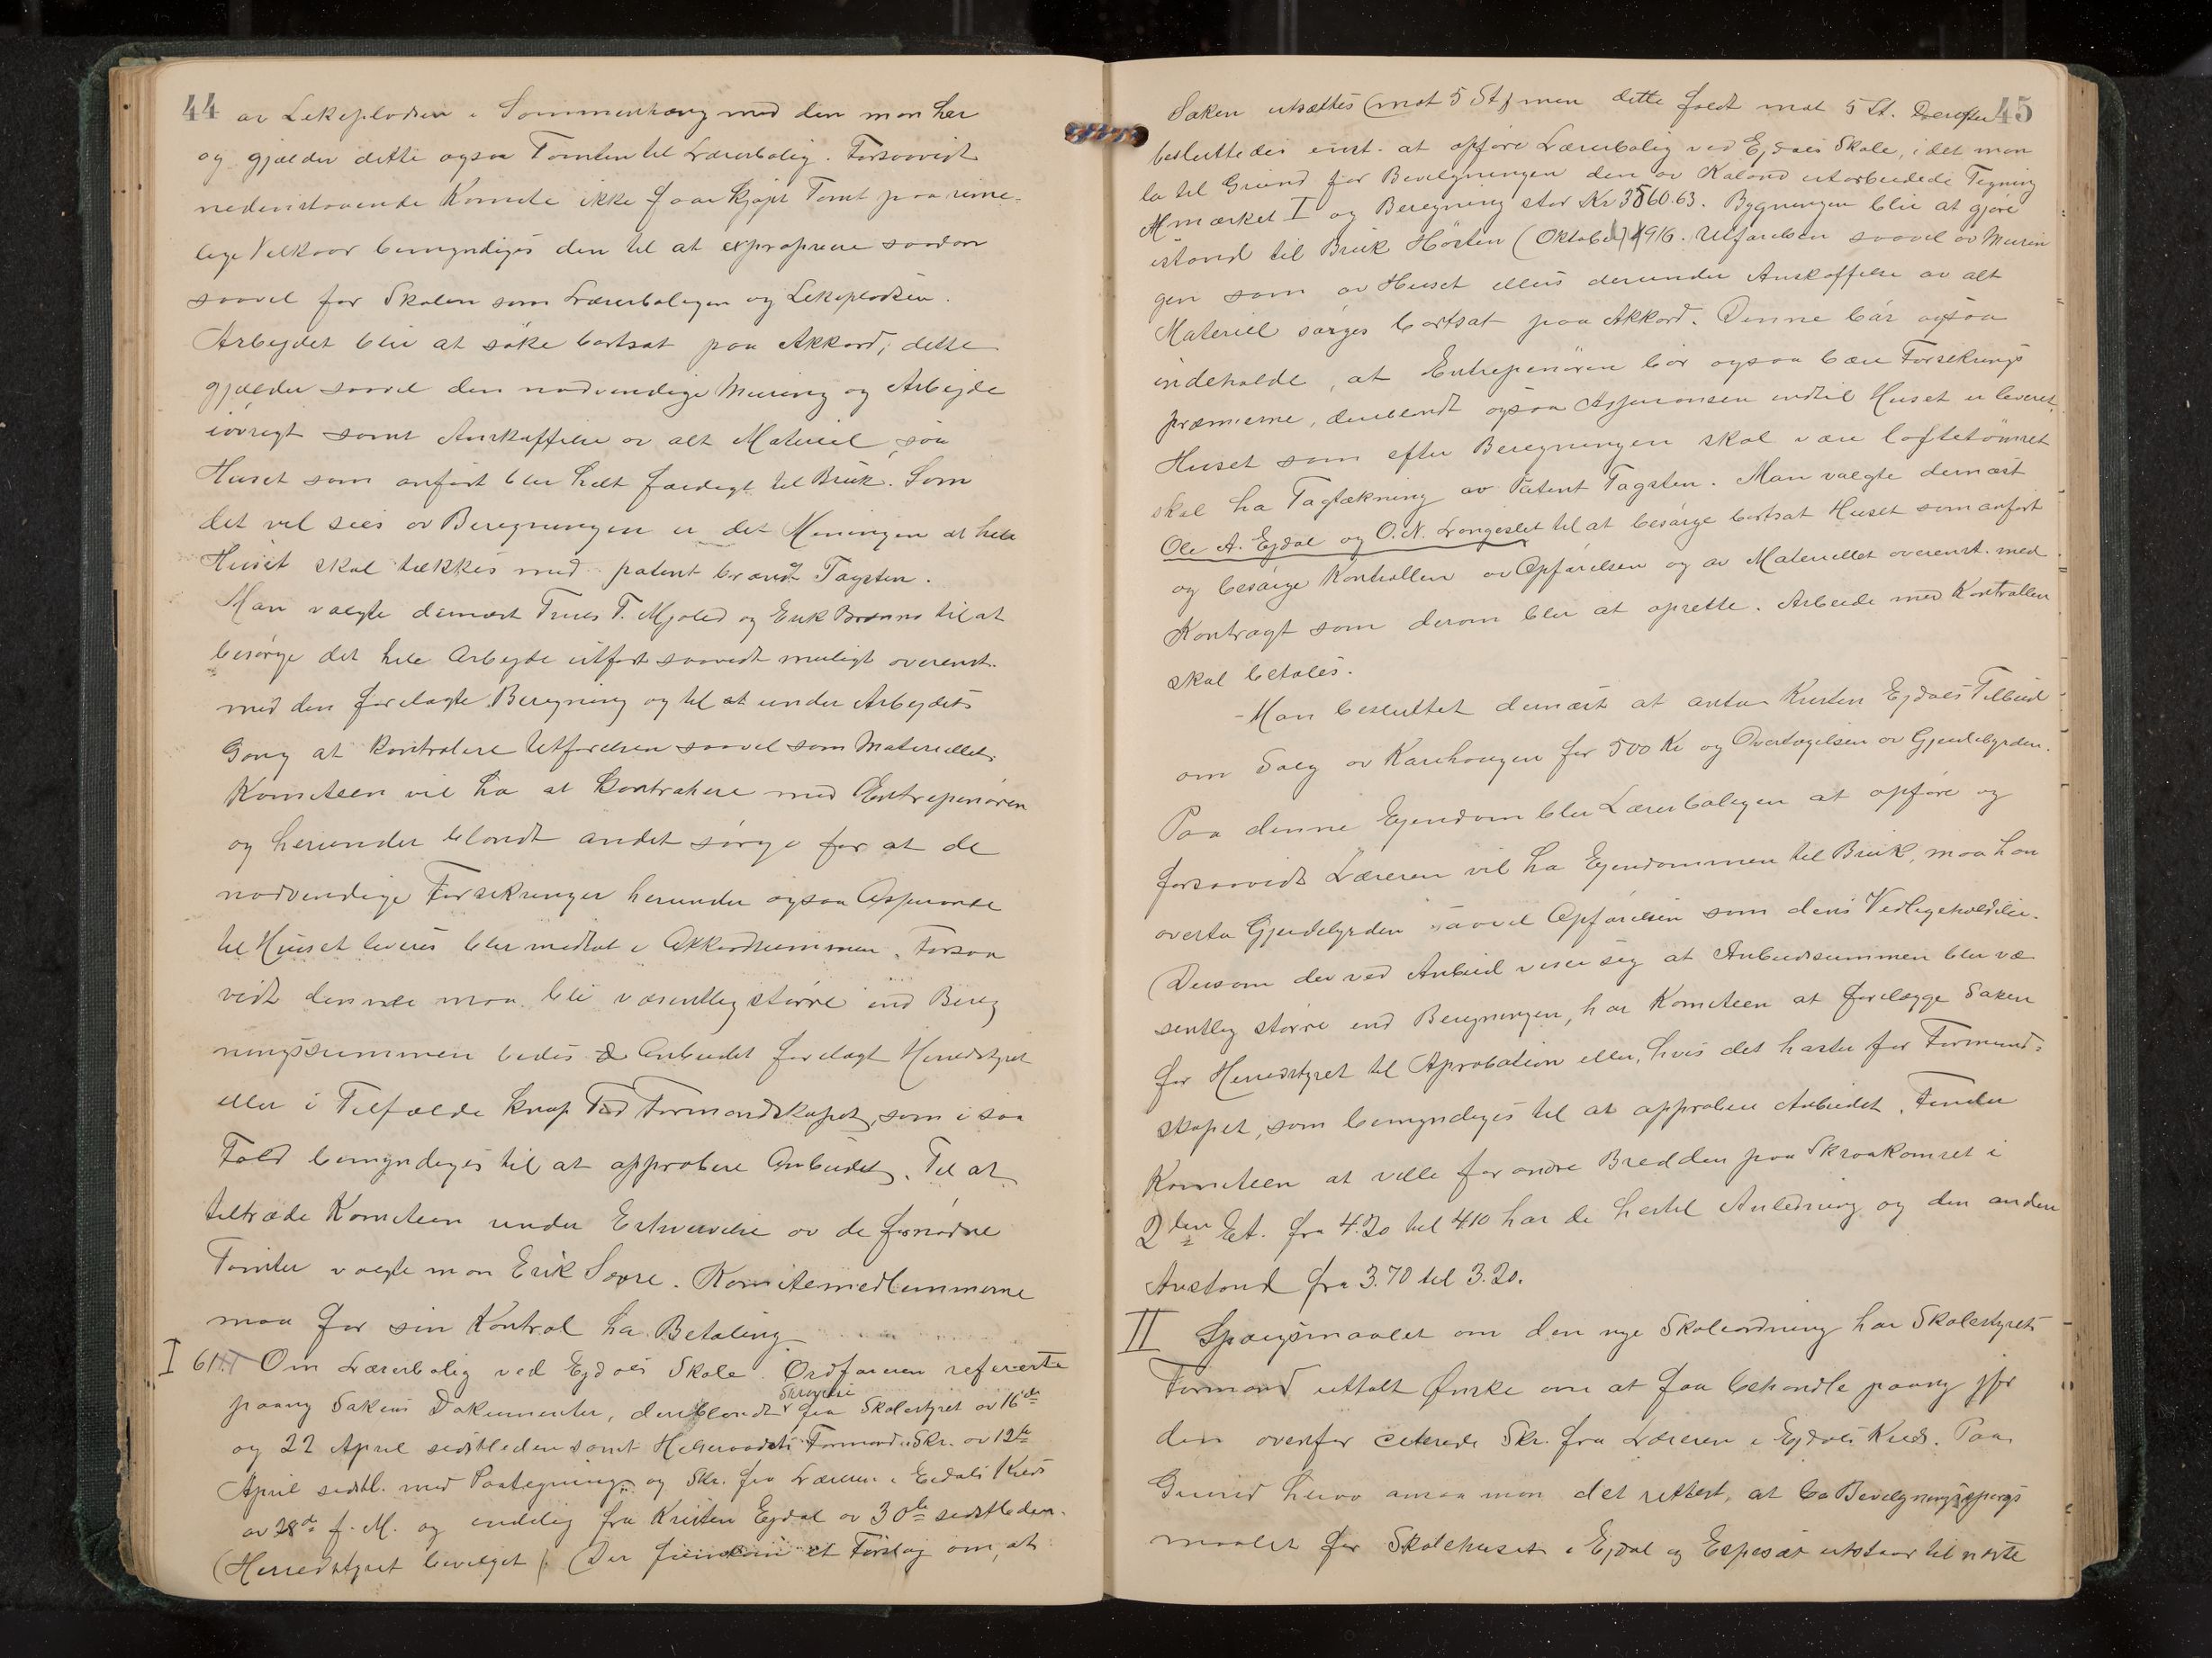 44
av Lekepladsen i Sammenhæng med den man har
og gjælder dette ogsaa Tomten til Lærerbolig. Forsaavidt
nedenstaaende Komite ikke faar kjøpt Tomt paa rime-
lige Vilkaar bemyndiges den til at expropriere saadan
saavel for Skolen som Lærerboligen og Lekepladsen.
Arbeydet blir at søke bortsat paa Akkord; dette
gjælder saavel den nødvendige Muring og Arbejde
iøvrigt samt Anskaffelse av alt Materiel, saa
Huset som anført blir helt færdigt til Bruk. Som
det vil sees av Beregningen er det Meningen at hele
Huset skal tækkes med patent brændt Tagsten.
Man valgte dernæst Truls T. Mjøled og Erik til at
besørge det hele Arbeyde utført saavidt muligt overenst.
med den forelagte Beregning og til at under Arbeydets
Gang at kontrolere Utførelsen saavel som Materiellet.
Komiteen vil ha at kontrahere med Entrepenøren
og herunder blandt andet sørge for at de
nødvendige Forsikringer herunder ogsaa Assurance
til Huset leveres blir medtat i Akkordsummen. Forsaa
vidt denne maa bli væsentlig større end Bereg
ningssummen bedes Anbudet forelagt Herredstyret
eller i Tilfælde knap Tid Formandskapet, som i saa
Fald bemyndiges til at approbere Anbudet. Til at
tiltræde Komiteen under Erhvervelse av de fornødne
Tomter valgte man Erik. Komitemedlemmerne
maa for sin Kontrol ha Betaling
I 61. Om Lærerbolig ved Ejdals Skole. Ordføreren refererte
paany Sakens Dokumenter, deriblandt Skrivelse fra Skolestyret av 16de
og 22 April sidstleden samt Helseraadets Formands Skr. av 12te
April sidstl. med Paategning og Skr. fra Læreren i Eidals Kreds
av 28de f. M. og endelig fra Kristen Ejdal av 30te sidstleden.
(Herredstyret bevilget). (Der et Forslag om, at
45
Saken utsættes (mot 5 St) men dette faldt mot 5 St. Derefter
besluttedes enst. at opføre Lærerbolig ved Ejdals Skole, idet man
la til Grund for Bevilgningen den av Kaland utarbeidede Tegning
Mmærket I og Beregning stor Kr 3560.63. Bygningen blir at gjøre
istand til Bruk Høsten (Oktober) 1916. Utførelsen saavel av Murin
gen som av Huset ellers derunder Anskaffelse av alt
Materiel sørges bortsat paa Akkord. Denne bør ogsaa
indeholde, at Entrepenøren bør ogsaa bære Forsikrings
præmierne, deriblandt ogsaa Assuransen indtil Huset er leveret.
Huset som efter Beregningen skal være loftetømret
skal ha Tagtækning av Patent Tagsten. Man valgte dernæst
Ole A. Ejdal og O. N. Langeslet til at besørge bortsat Huset som anført
og besørge Kontrollen av Opførelsen og av Materiellet overenst. med
Kontragt som derom blir at oprette. Arbeide med Kontrollen
skal betales.
- Man besluttet dernæst at anta Kristen Ejdals Tilbud
om Salg av Karihougen for 500 Kr og Overtagelsen av Gjerdebyrden.
Paa denne Ejendom blir Lærerboligen at opføre og
forsaavidt Læreren vil ha Ejendommen til Bruk, maa han
overta Gjerdebyrden saavel Opførelsen som dens Vedlikeholdelse.
(Dersom det ved Anbud viser sig at Anbudsummen blir væ
sentlig større end Beregningen, har Komiteen at forelægge Saken
for Herredstyret til Aprobation eller, hvis det haster for Formand-
skapet, som bemyndiges til at approbere Anbudet. Finder
Komiteen at ville forandre Bredden paa Skraakamret i
2den Et. fra 4.20 til 4.10 har de hertil Anledning og den anden
Avstand fra 3.70 til 3.20.
II Spørgsmaalet om den nye Skoleordning har Skolestyrets
Formand uttalt Ønske om at faa behandle paany jfr
den ovenfor citerede Skr. fra Læreren i Ejdals Kreds. Paa
Grund herav ansaa man det rettest, at la Bevilgningsspørgs
maalet for Skolehuset i Ejdal og Espesæt utstaar til næste